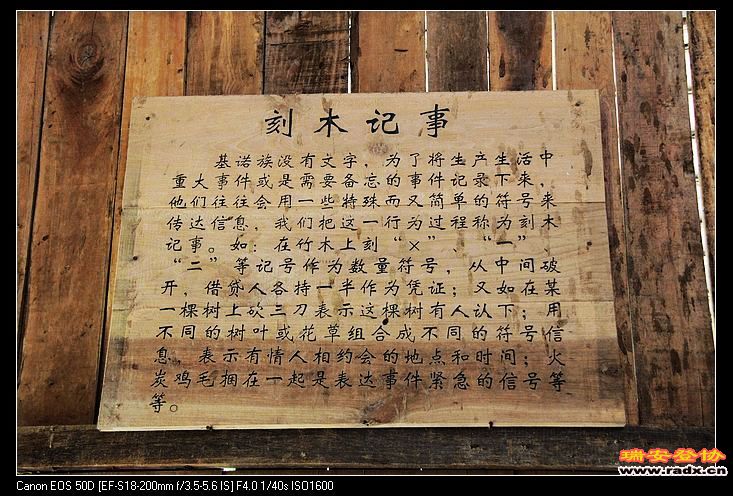 刻木记事
基诺族没有文字，为了将生产生活中
重大事件或是需要备忘的事件记录下来，
他们往往会用一些特殊而又简单的符号来
传达信息，我们把这一行为过程称为刻木
记事。如：在竹木上刻“×”、“一”、
“二”等记号作为数量符号，从中间破
开，借贷人各持一半作为凭证；又如在某
一棵树上砍三刀表示这棵树有人认下；用
不同的树叶或花草组合成不同的符号信
息，表示有情人相约会的地点和时间；火
炭鸡毛捆在一起是表达事件紧急的信号等
等。
瑞安登协
www.radx.cn
Canon EOS 50D [EF-S18-200mm f/3.5-5.6 IS] F4.0 1/40s ISO1600